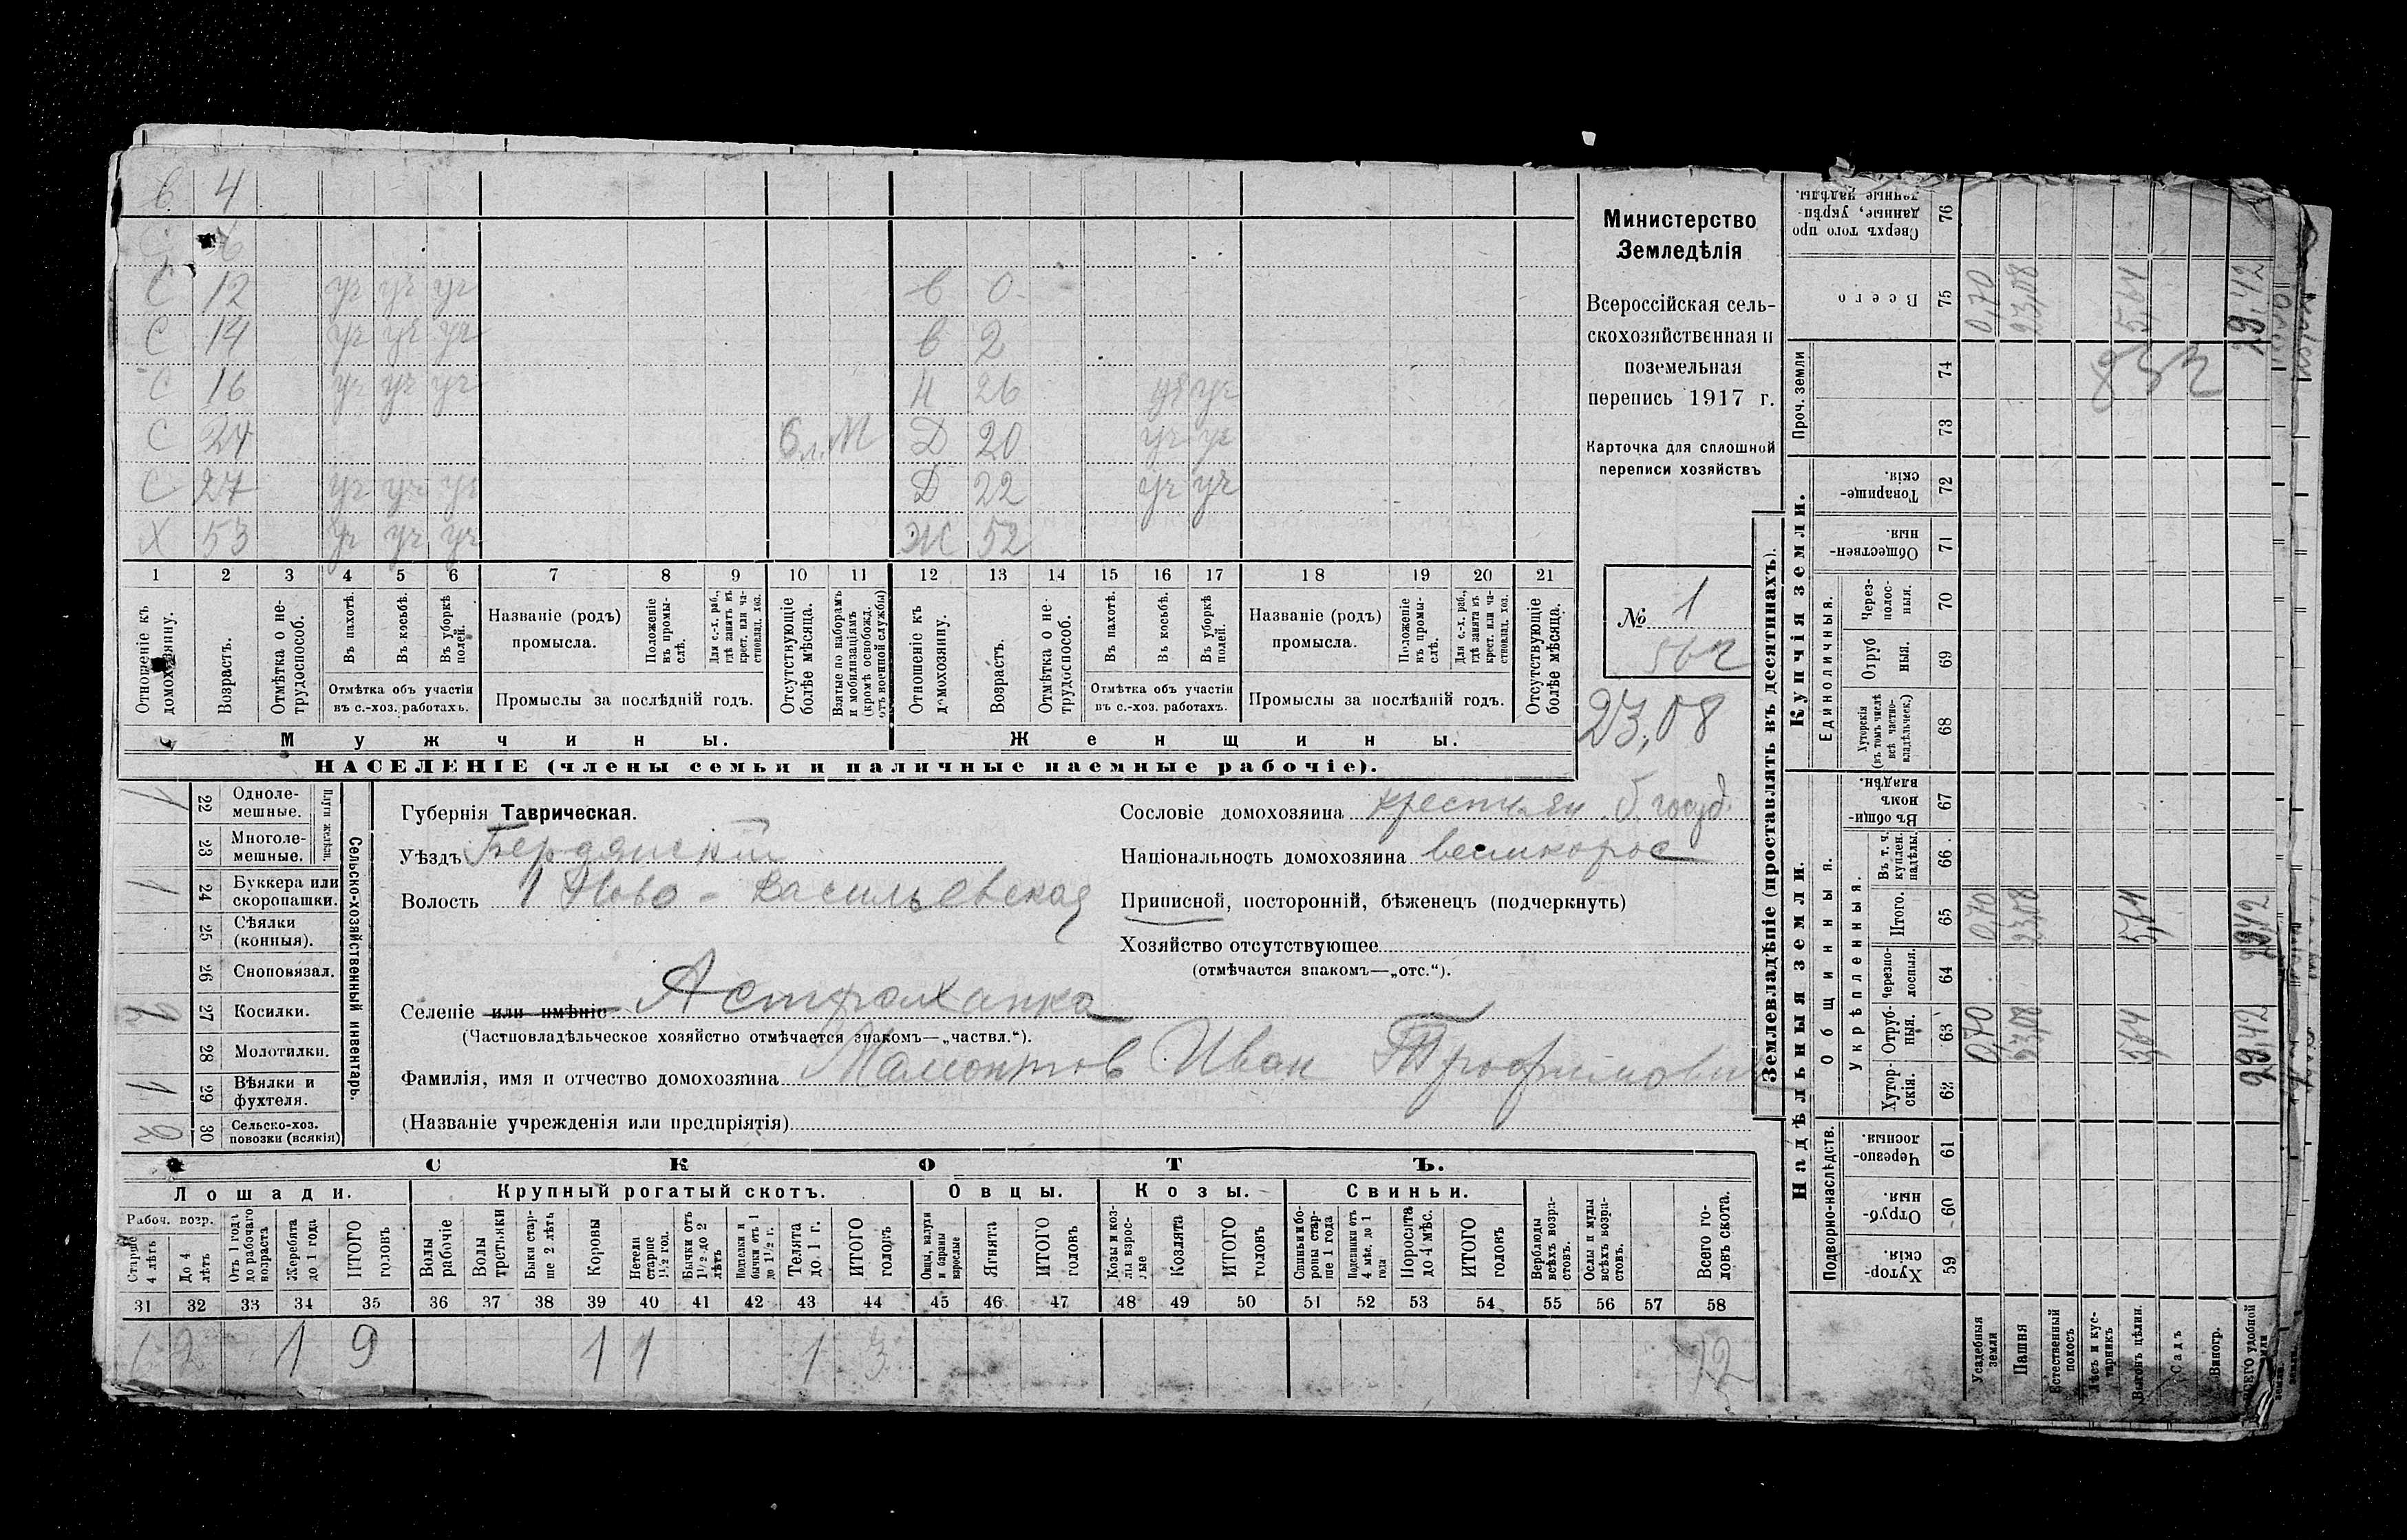 в 4
С 12 уч уч уч в 0
С 14 уч уч уч в 2
С 16 уч уч уч Н 26 уч уч
С 24 М Д 20 уч уч
С 27 уч уч уч Д 22 уч уч
Х 53 уч уч уч Ж 52
1 2 3 4 5 6 7 8 9 10 11 12 13 14 15 16 17 18 19 20 21
Отношеніе къ домохозяину.
Возрастъ.
Отмѣтка о не-трудоспособ.
Въ пахотѣ.
Въ косьбѣ.
Въ уборкѣ полей.
Отмѣтка объ участіи
въ с.-хоз. работахъ.
Названіе (родъ)
промысла.
Положеніе въ промы-слѣ.
Для с.-х. раб., гдѣ занятъ въ крест. или ча-стновлад. хоз.
Промыслы за послѣдній годъ.
Отсутствующіе болѣе мѣсяца.
Взятые по наборамъ и мобилизаціямъ (кромѣ освобожд. отъ военной службы)
Отношеніе къ домохозяину.
Возрастъ.
Отмѣтка о не-трудоспособ.
Въ пахотѣ.
Въ косьбѣ.
Въ уборкѣ полей.
Отмѣтка объ участіи
въ с.-хоз. работахъ.
Названіе (родъ)
промысла.
Положеніе въ промы-слѣ.
Для с.-х. раб., гдѣ занята въ крест. или ча-стновлад. хоз.
Промыслы за послѣдній годъ.
Отсутствующіе болѣе мѣсяца.
Мужчины. Женщины.
НАСЕЛЕНІЕ (члены семьи и наличные наемные рабочіе).
Министерство
Земледѣлія
Всероссійская сель-
скохозяйственная и
поземельная
перепись 1917 г.
Карточка для сплошной
переписи хозяйствъ
№ 1
562
23,08
Сельско-хозяйственный инвентарь.
Плуги желѣзн.
1 22 Одноле-мешные.
23 Многоле-мешные.
1 24 Буккера или скоропашки.
25 Сѣялки (конныя).
26 Сноповязал.
27 Косилки.
28 Молотилки.
1 29 Вѣялки и фухтеля.
2 30 Сельско-хоз. повозки (всякія)
Губернія Таврическая.
Уѣздъ Бердянскій
Волость 1 Ново-Васильевская
Селеніе или имѣніе Астраханка
(Частновладѣльческое хозяйство отмѣчается знакомъ—„частвл.“).
Фамилія, имя и отчество домохозяина Мамонтов Иван Трофимович
(Названіе учрежденія или предпріятія)
Сословіе домохозяина крестьян. б. госуд.
Національность домохозяина великорос
Приписной, посторонній, бѣженецъ (подчеркнуть)
Хозяйство отсутствующее
(отмѣчается знакомъ—„отс.“).
СКОТЪ.
Лошади. Крупный рогатый скотъ. Овцы. Козы. Свиньи.
Рабоч. возр.
Старше 4 лѣтъ
До 4 лѣтъ
Отъ 1 года до рабочаго возраста
Жеребята до 1 года
ИТОГО головъ
Волы рабочіе
Волы третьяки
Быки стар-ше 2 лѣтъ
Коровы
Нетели старше 1½ год.
Бычки отъ 1½ до 2 лѣтъ
Подтелки и бычки отъ 1 до 1½ г.
Телята до 1 г.
ИТОГО головъ
Овцы, валухи и бараны взрослые
Ягнята
ИТОГО головъ
Козы и коз-лы взрос-лые
Козлята
ИТОГО головъ
Свиньи и бо-ровы стар-ше 1 года
Подсвинки отъ 4 мѣс. до 1 года
Поросята до 4 мѣс.
ИТОГО головъ
Верблюды всѣхъ возра-стовъ.
Ослы и мулы всѣхъ возра-стовъ.
Всего го-ловъ скота.
31 32 33 34 35 36 37 38 39 40 41 42 43 44 45 46 47 48 49 50 51 52 53 54 55 56 57 58
6 2 1 9 1 1 1 3 12
Землевладѣніе (проставлять въ десятинахъ).
Надѣльныя земли. Купчія земли.
Подворно-наслѣдств. Общинныя. Укрѣпленныя. Единоличныя. Проч. земли
59 Хутор-скія.
60 Отруб-ныя.
61 Черезпо-лосныя
62 Хутор-скія.
63 Отруб-ныя.
64 Черезпо-лосныя.
65 Итого.
66 Въ т. ч. куплен. надѣлы.
67 Въ общи-номъ владѣн.
68 Хуторскія (въ томъ числѣ всѣ частно-владѣльческ.)
69 Отруб ныя.
70 Черес-полос-ныя.
71 Обществен-ныя
72 Товарище-скія.
73
74
75 Всего
76 Сверхъ того про данные, укрѣп-ленные надѣлы.
Усадебныя земли 0,70 0,70 0,70
Пашня 23,08 23,08 23,08
Естественный покосъ
Лѣсъ и кус-тарникъ
Выгонъ цѣлин. 5,64 5,64 5,64
Садъ
Виногр.
ВСЕГО удобной земли 29,42 29,42 29,42
852